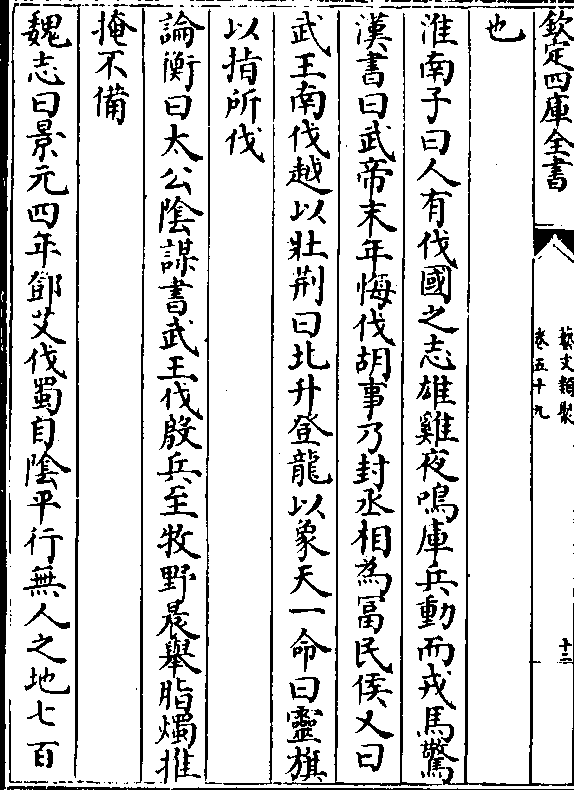 欽定四庫全書
藝文類聚
卷五十九
十二
也
淮南子曰人有伐國之志雄雞夜鳴庫兵動而戎馬驚
漢書曰武帝末年悔伐胡事乃封丞相為富民侯又曰
武王南伐越以壯荆曰北升登龍以象天一命曰靈旗
以指所伐
論衡曰太公陰謀書武王伐殷兵至牧野晨舉脂燭推
掩不備
魏志曰景元四年鄧艾伐蜀自陰平行無人之地七百